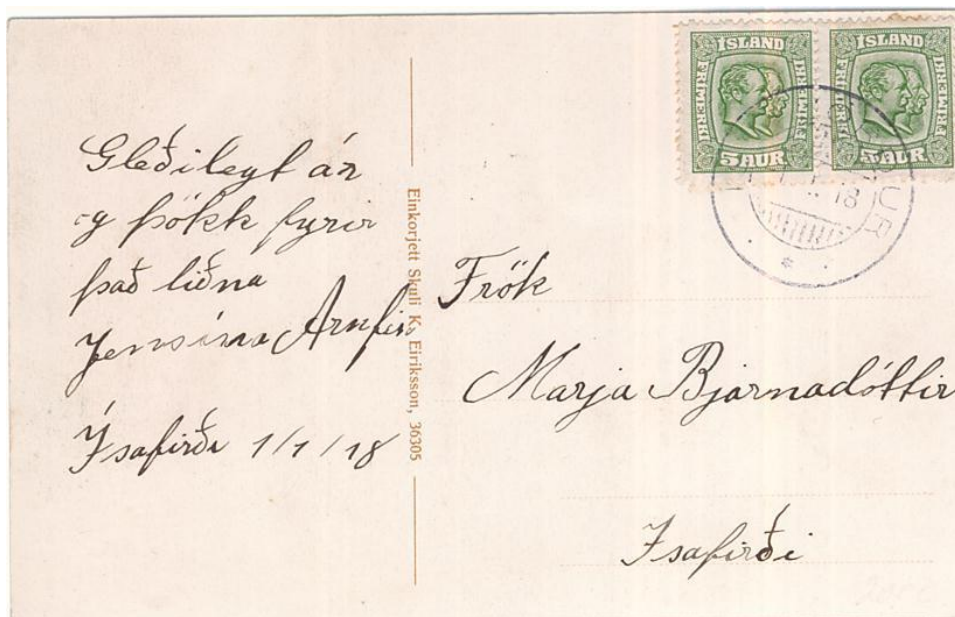 Gleðilegt ár
og þökk fyrir
það liðna
Jensína Arnfis
Ísafirði 1/1/18
Einkorjett Skuli K. Eiriksson, 36305
ÍSLAND
FRIMERKI
FRIMERKI
5 AUR
ÍSLAND
FRIMERKI
FRIMERKI
5 AUR
18
Frök
Marja Bjarnadóttir
Isafirði